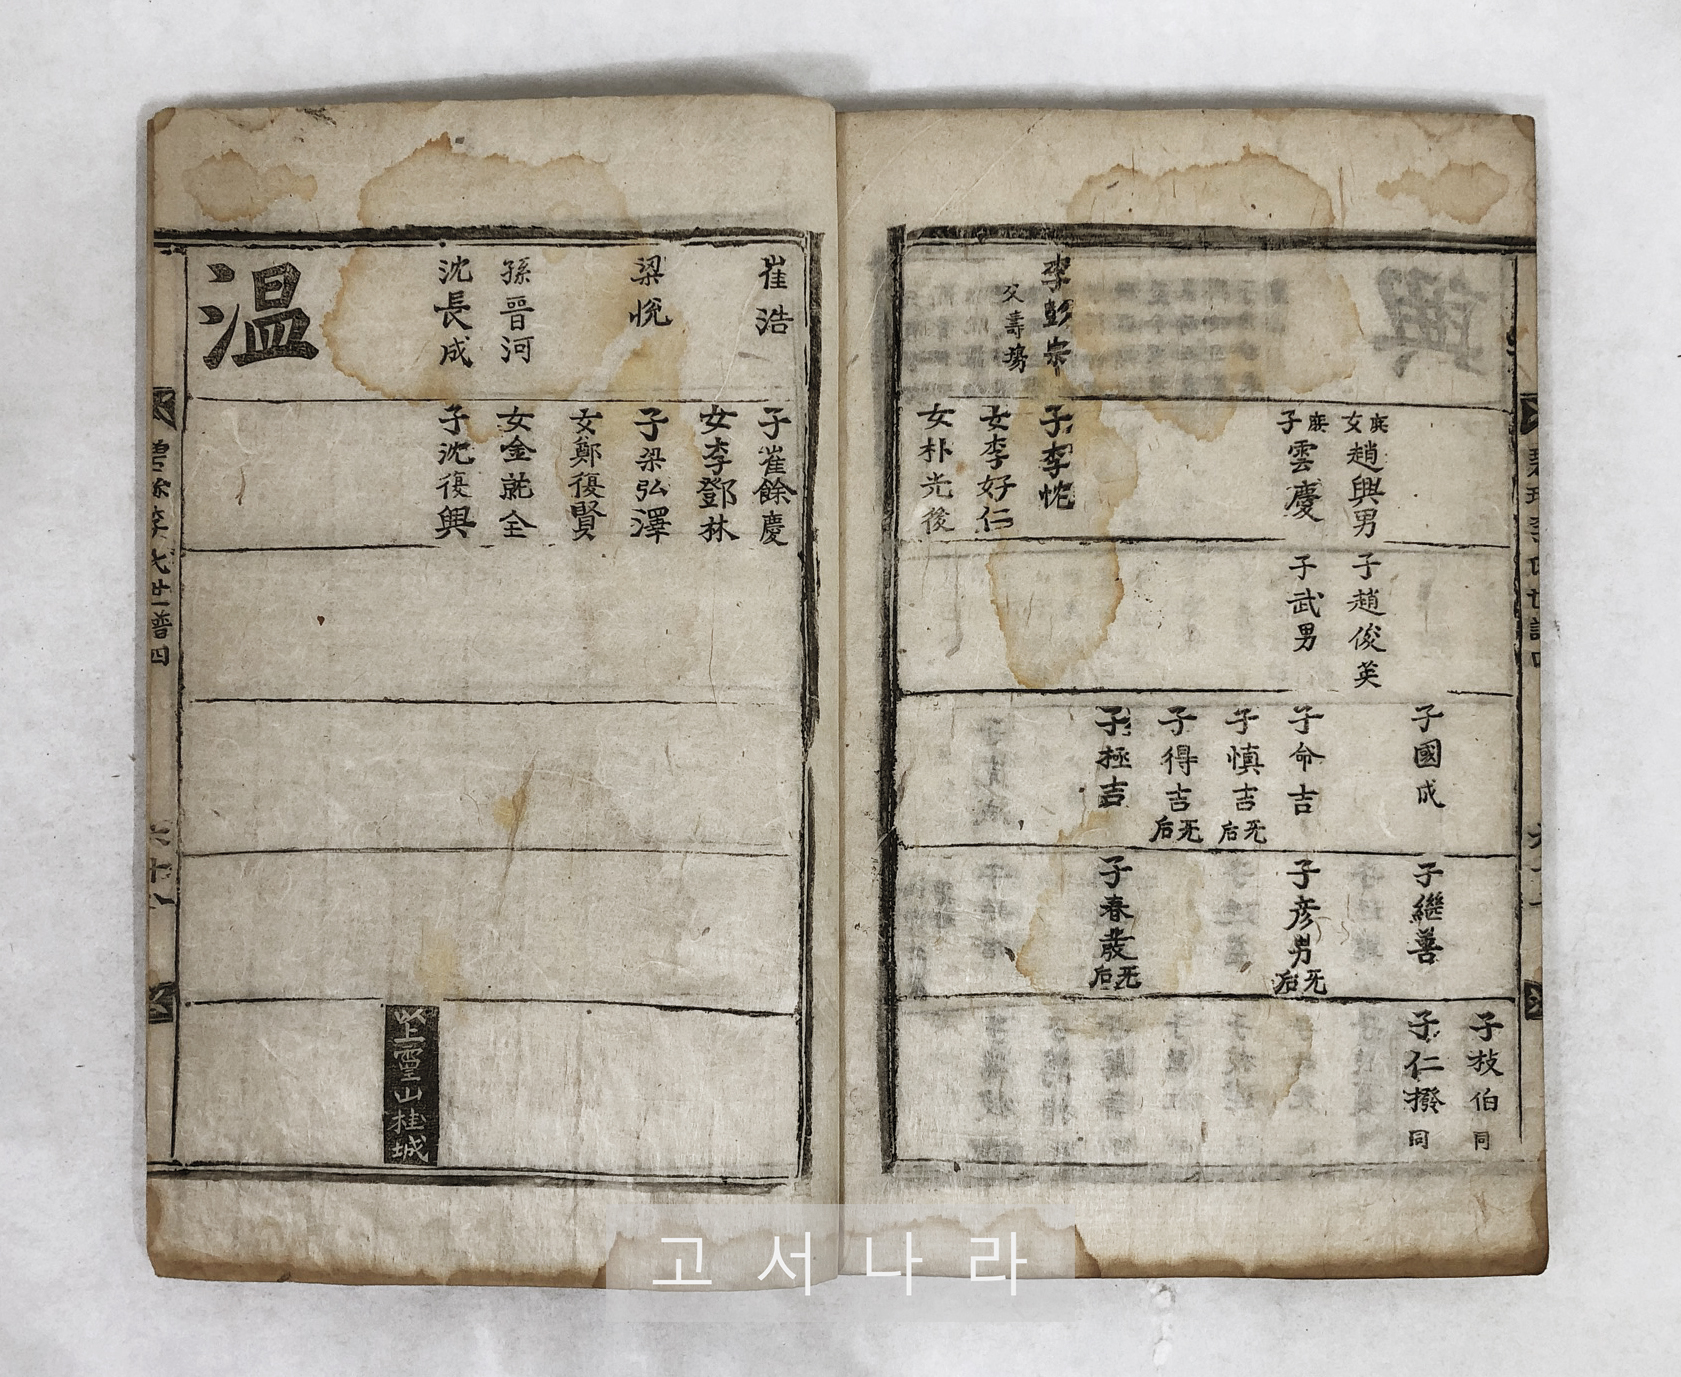 子枝伯同
子國成
子繼善
子仁撥同
庶女趙興男
子趙俊英
庶子雲慶
子武男
子命吉
子彦男无后
子慎吉无后
子得吉无后
子極吉
子春發无后
李彭
父壽
子李
女李好仁
女朴光後
崔浩
子崔餘慶
女李鄧林
梁悅
子梁弘澤
女鄭復賢
孫晋河
女金就全
沈長成
子沈復興
以上靈山桂城
温
碧珎李氏世譜四
고서나라